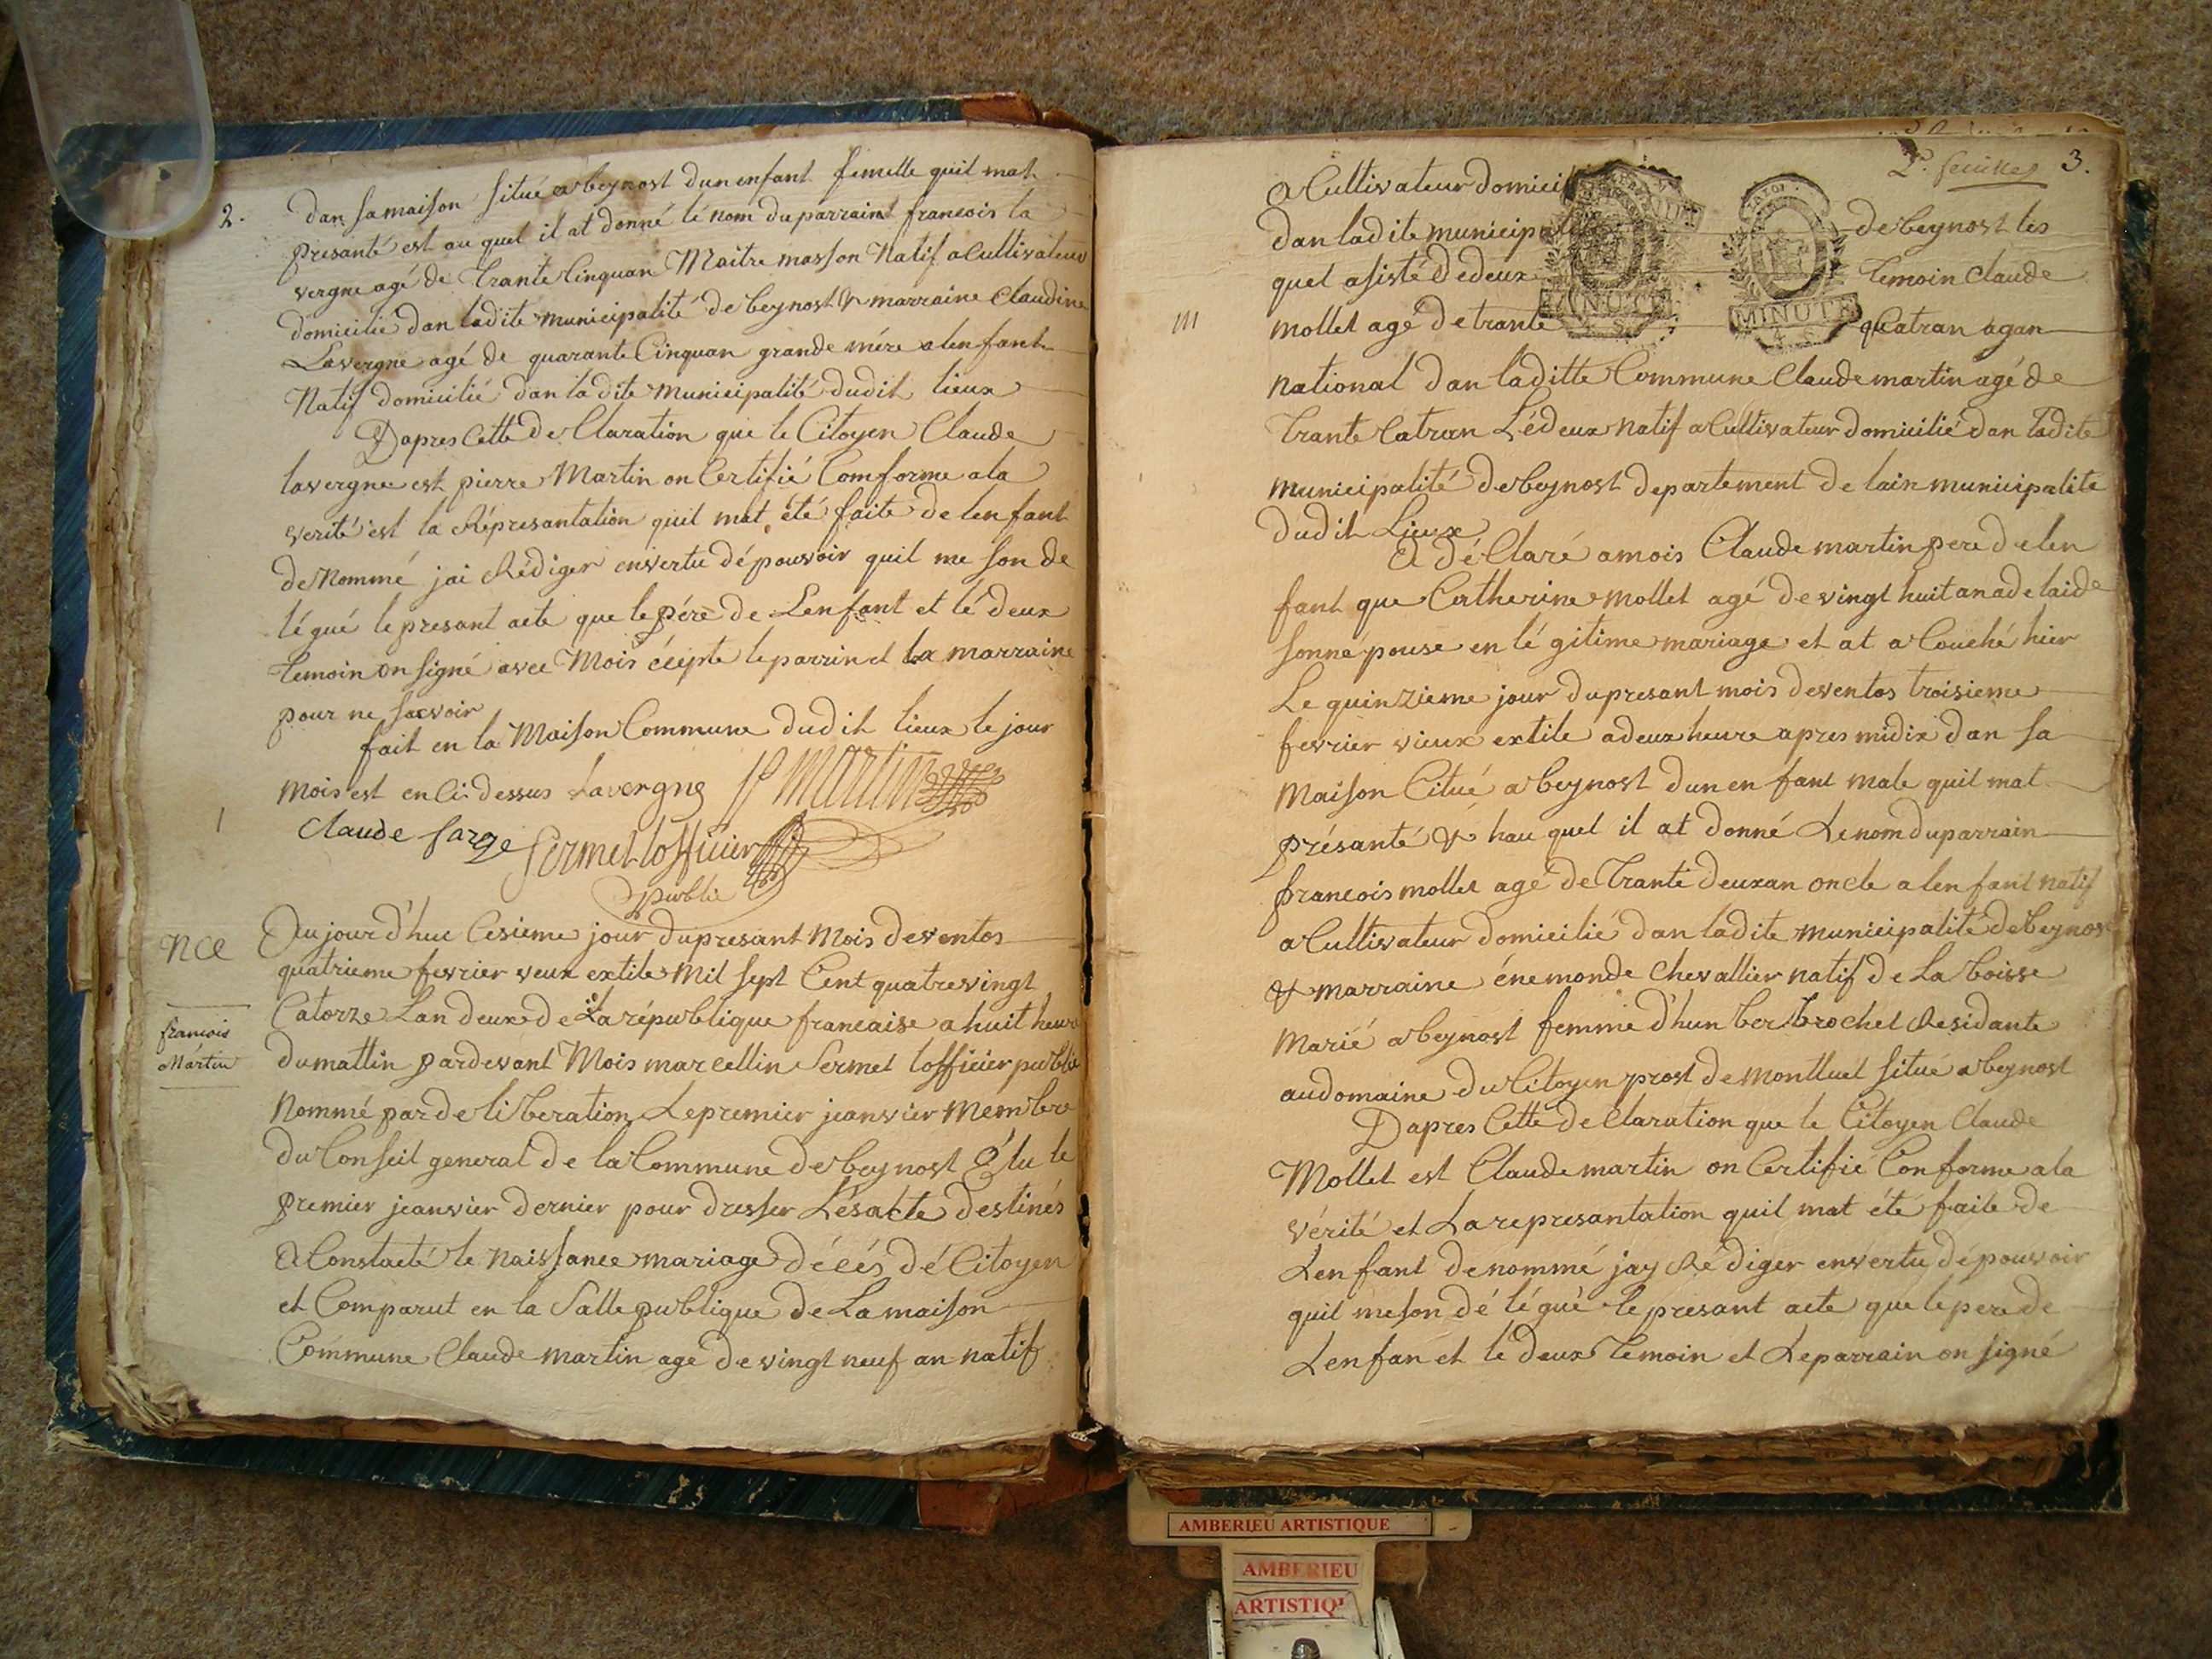 2.
dan sa maison situé a beynost dun enfant femelle quil mat
presanté est au quel il at donné lé nom du parraint francois la
vergne agé de trante Cinquan Maitre masson Natif a Cultivateur
domicilié dan ladite municipalité de beynost & marraine Claudine
Lavergne agé de quarante Cinquan grande mére a lenfant
Natif domicilié dan la dite municipalité dudit lieux
Dapres Cette de Claration que le Citoyen Claude
lavergne est pierre Martin on Certifié Comforme a la
verité est la Réprésantation quil mat été faite de lenfant
de Nommé jai Rédiger en vertu dé pouvoir quil me son de
légué le presant acte que le pére de Lenfant et lé deux
temoin on signé avec Mois éçepte le parrin et la marraine
pour ne savoir
fait en la Maison Commune dudit lieux le jour
mois est en Ci dessus Lavergne P martin
Claude farge Sermet lofficier
public
NCe
francois
Martin
Aujourd'hue Cesieme jour du presant Mois de ventos
quatrieme fevrier veux extile Mil sept Cent quatrevingt
Catorze Lan deuxe de La république francaise a huit heure
du mattin pardevant Mois marcellin Sermet lofficier public
Nommé par deliberation Le premier jeanvier Membre
du Conseil general de la Commune de beynost élu le
premier jeanvier dernier pour dresser Lésacte destinés
A Constacté le Naissance mariage décés dé Citoyen
et Comparut en la Salle publique de La maison
Commune Claude martin age de vingt neuf an natif
2e. feuilles 3.
a Cultivateur domicil
dan ladite municipalité de beynost les
quel asisté de deux temoin Claude
III
mollet agé de trante quatran agan
MINUTE
MINUTE
national dan laditte Commune Claude martin agé de
trante Catran Lédeux natif a Cultivateur domicilié dan ladite
municipalité de beynost departement de lain municipalite
dudit Lieux
A déClaré a mois Claude martin pere de len
fant que Catherine mollet agé de vingt huit an a de laide
sonné pouse en lé gitime mariage et at a Couché hier
Le quinzieme jour du presant mois deventos troisieme
fevrier vieux extile a deux heure apres midix dan sa
Maison Citué a beynost dun en fant male quil mat
présanté & hau quel il at donné Le nom du parrain
francois mollet agé de trante deuxan oncle a lenfant natif
a Cultivateur domicilié dan ladite municipalité de beynost
& marraine énemonde Chevallier natif de La boisse
Marié a beynost femme d'hun ber brochet Residante
au domaine du Citoyen prost de montluel situé a beynost
Dapres Cette de Claration que le Citoyen Claude
Mollet est Claude martin on Certifié Conforme a la
vérité et La represantation quil mat été faite de
Lenfant denommé jay Rédiger en vertu dé pouvoir
quil me son dé légué le presant acte que le pere de
Lenfan et le deux temoin et Le parrain on signé
AMBERIEU ARTISTIQUE
AMBERIEU
ARTISTIQ